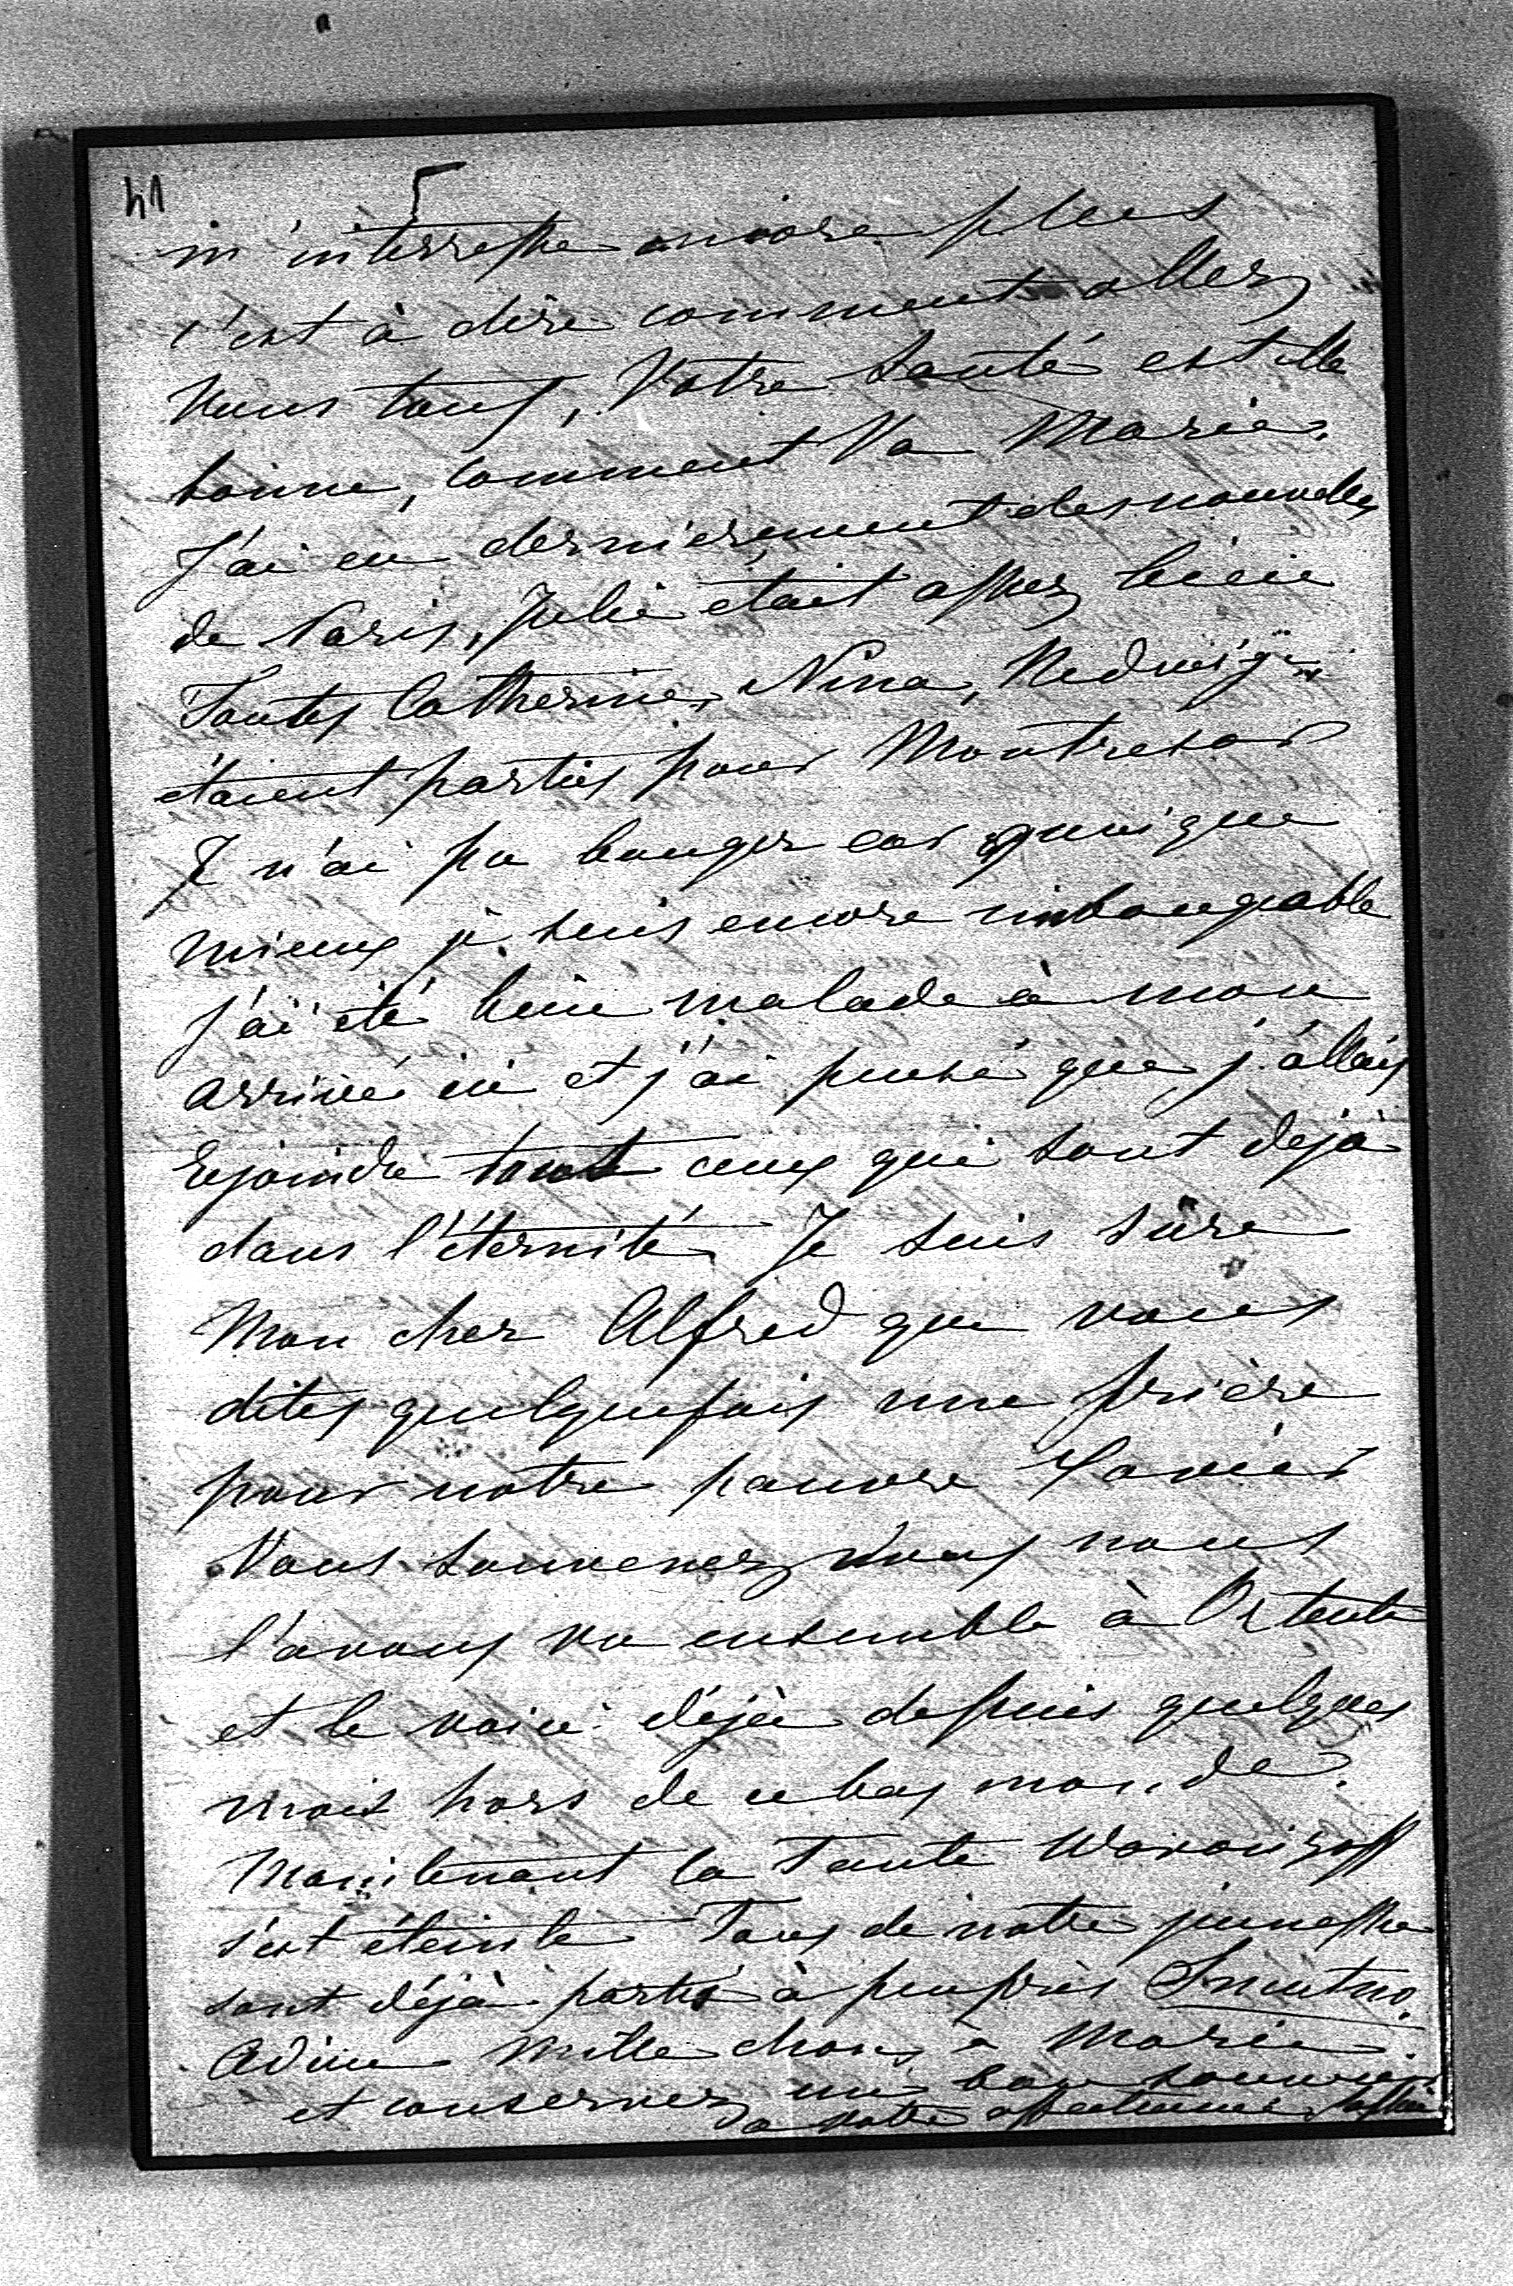 41
5
m'interresse encore plus
c'est à dire comment allez
Vous tous, Votre Santé est elle
bonne, Comment Va Marie.
J'ai eu dernierement des nouvelles
de Paris, Julie était assez bien
Toutes Catherine, Nina, Hedwige
étaient parties pour Montresor
Je n'ai pu bouger car quoique
mieux je suis encore inbougeable
j'ai été bien malade à mon
arrivée ici et j'ai pensé que j'allais
rejoindre tout ceux qui sont dejà
dans l'éternité. Je suis sûre
Mon cher Alfred que vous
dites quelquefois une prière
pour notre pauvre Xavier
Vous souvenez vous nous
l'avons vu ensemble à Ostende
et le voici déjà depuis quelques
mois hors de ce bas monde.
Maintenant la Tante Woronzoff
s'est éteinte Tous de notre jeunesse
sont déjà partis à peu près Smutno.
Adieu Mille choses à Marie.
et conservez un bon souvenir
à votre affectionnée